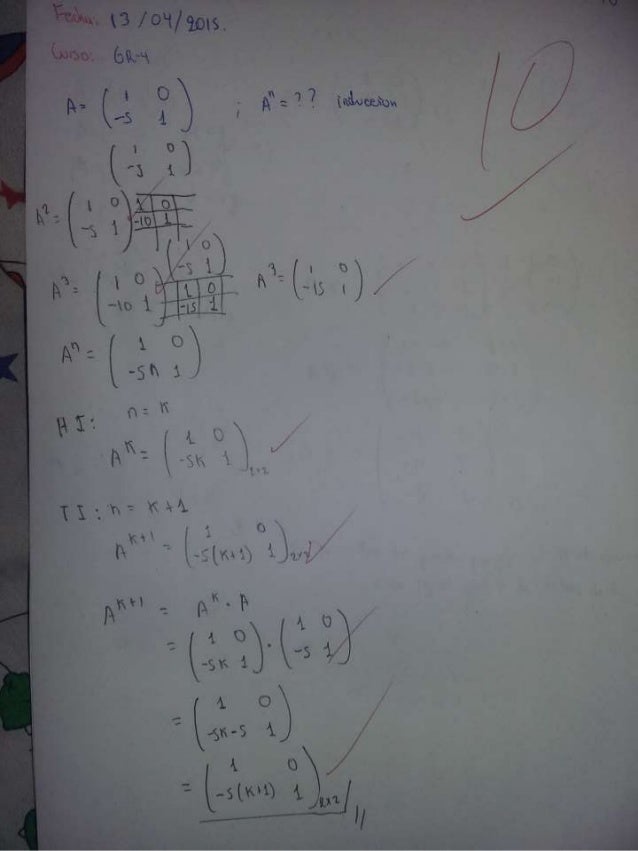 Fecha: 13/04/2015.
Curso: GR-4
10
A = ( 1 0 ; -5 1 ) ; Aⁿ = ?? inducción
( 1 0 ; -5 1 )
A² = ( 1 0 ; -5 1 ) 1 0 -10 1
( 1 0 ; -5 1 )
A³ = ( 1 0 ; -10 1 ) 1 0 -15 1 A³ = ( 1 0 ; -15 1 )
Aⁿ = ( 1 0 ; -5n 1 )
HI: n = k
Aᵏ = ( 1 0 ; -5k 1 )₂ₓ₂
TI: n = k+1
Aᵏ⁺¹ = ( 1 0 ; -5(k+1) 1 )₂ₓ₂
Aᵏ⁺¹ = Aᵏ . A
= ( 1 0 ; -5k 1 ) . ( 1 0 ; -5 1 )
= ( 1 0 ; -5k-5 1 )
= ( 1 0 ; -5(k+1) 1 )₂ₓ₂ //